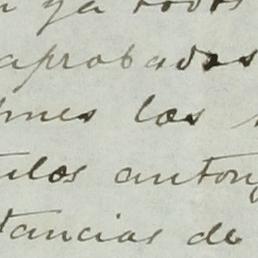 ya todos
aprobados
mes los
ulos anton
tancias de